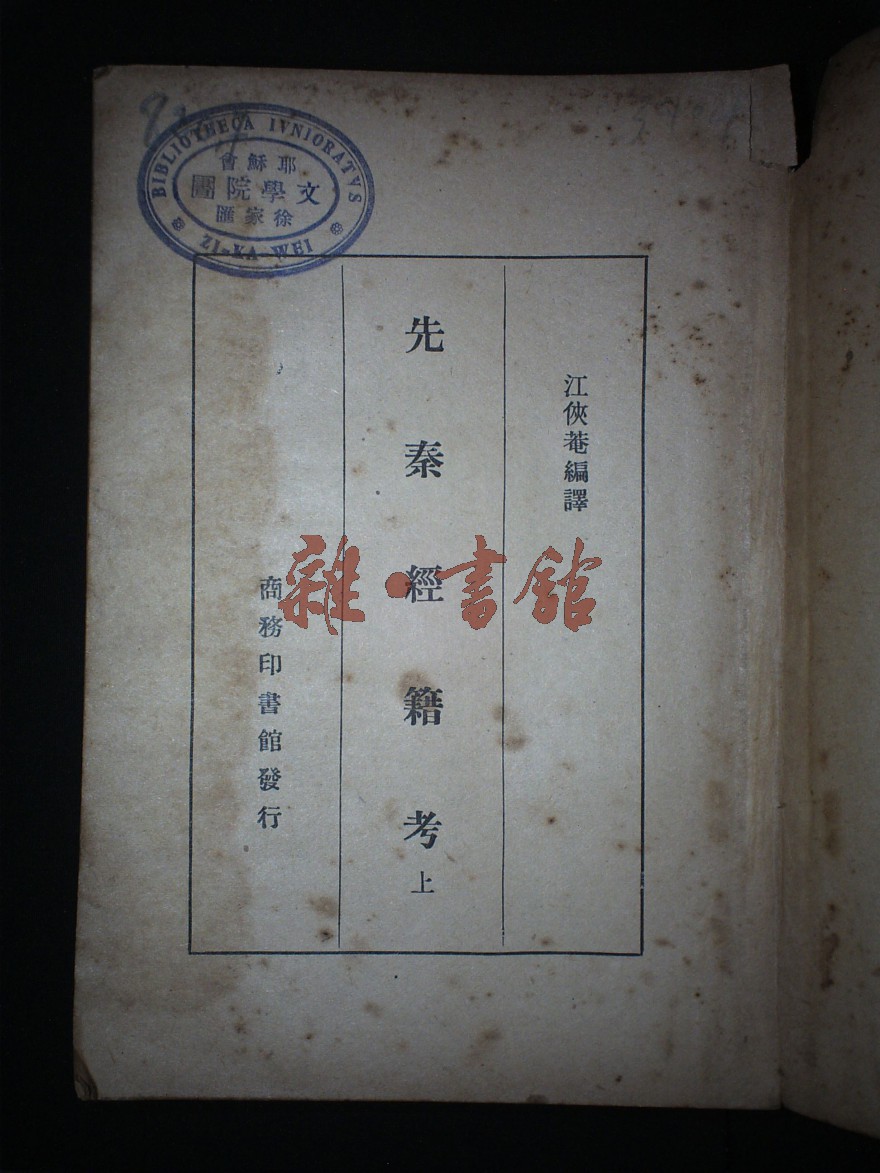 BIBLIOTHECA IVNIORATVS
會穌耶
圖院學文
匯家徐
ZI-KA-WEI
江俠菴編譯
先秦經籍考上
商務印書館發行
雜·書館